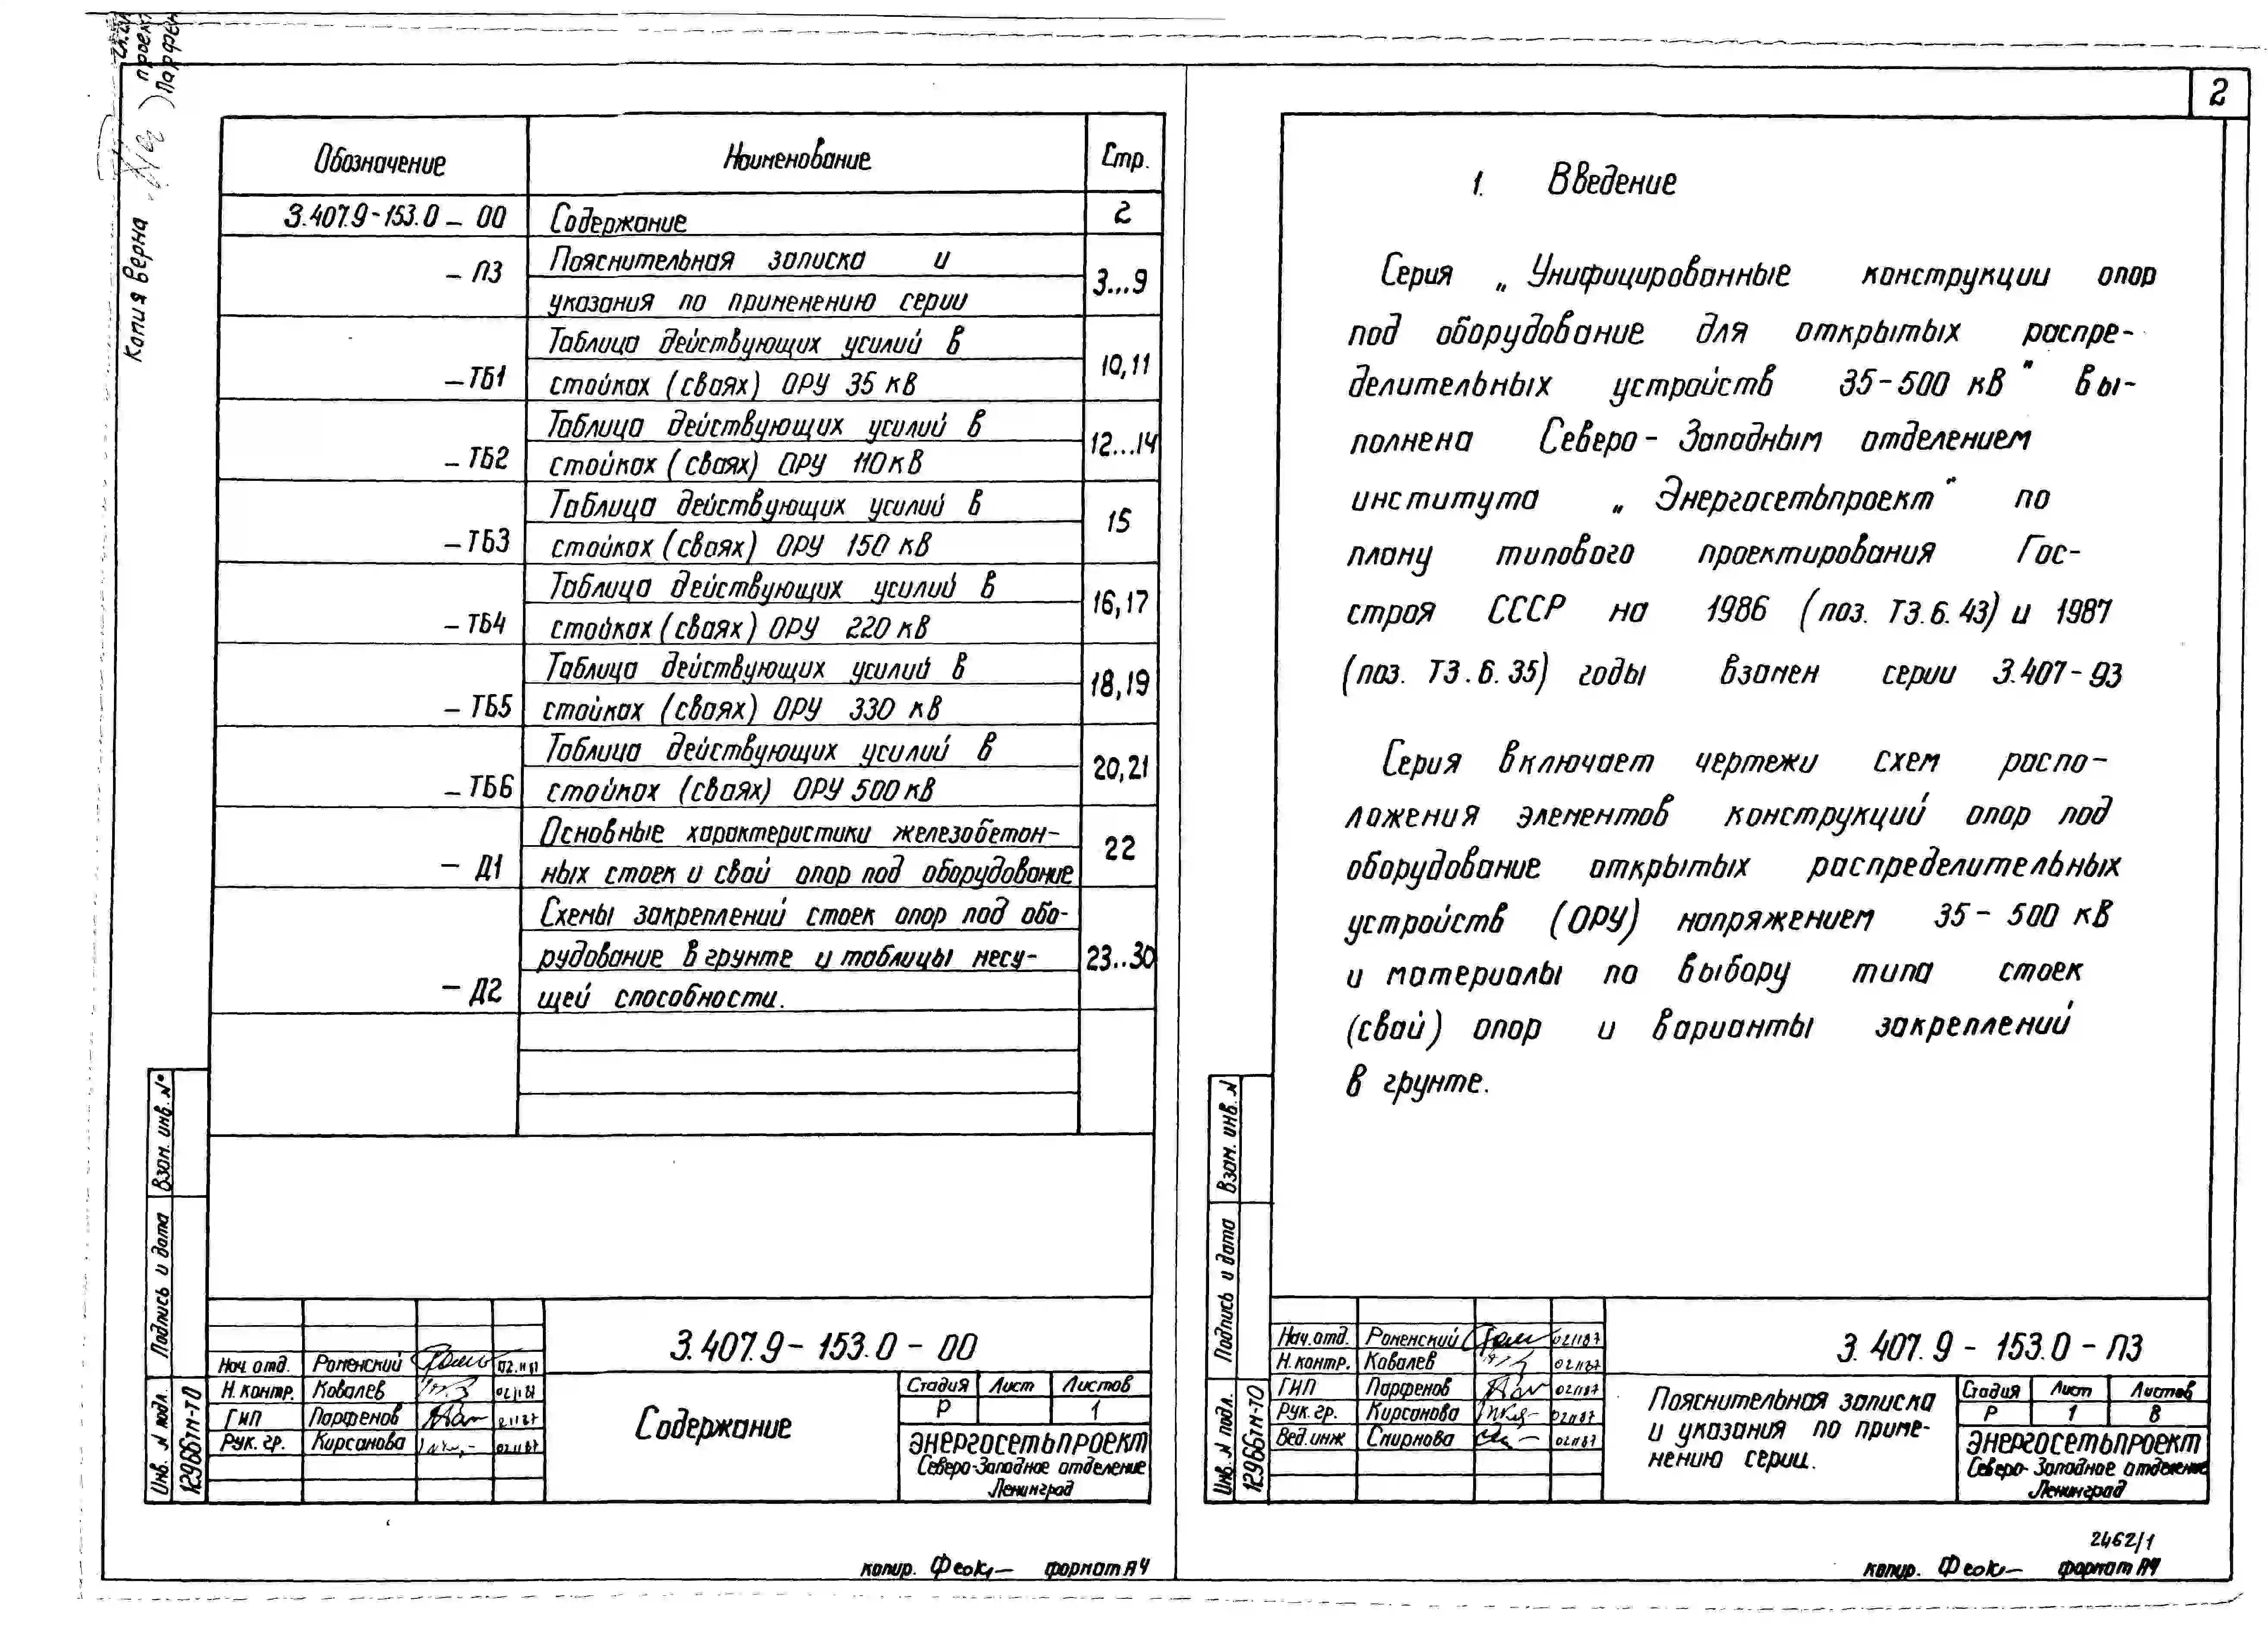 Копия верна
2
Обозначение Наименование Стр.
3.407.9-153.0-00 Содержание 2
-ПЗ Пояснительная записка и
указания по применению серии 3...9
Таблица действующих усилий в
-ТБ1 стойках (сваях) ОРУ 35 кВ 10,11
Таблица действующих усилий в
-ТБ2 стойках (сваях) ОРУ 110 кВ 12...14
Таблица действующих усилий в
-ТБ3 стойках (сваях) ОРУ 150 кВ 15
Таблица действующих усилий в
-ТБ4 стойках (сваях) ОРУ 220 кВ 16,17
Таблица действующих усилий в
-ТБ5 стойках (сваях) ОРУ 330 кВ 18,19
Таблица действующих усилий в
-ТБ6 стойках (сваях) ОРУ 500 кВ 20,21
Основные характеристики железобетон-
-Д1 ных стоек и свай опор под оборудование 22
Схемы закреплений стоек опор под обо-
рудование в грунте и таблицы несу- 23..30
-Д2 щей способности.
Взам. инв. №
Подпись и дата
Инв. № подл.
12966тм-Т0
3.407.9-153.0-00
Нач. отд. Роменский 02.11.87
Н. контр. Ковалев 02.11.87
ГИП Парфенов 02.11.87
Рук. гр. Кирсанова 02.11.87
Содержание
Стадия Лист Листов
Р 1
ЭНЕРГОСЕТЬПРОЕКТ
Северо-Западное отделение
Ленинград
копир. Феок- формат А4
1. Введение
Серия „Унифицированные конструкции опор
под оборудование для открытых распре-
делительных устройств 35-500 кВ" вы-
полнена Северо-Западным отделением
института „Энергосетьпроект" по
плану типового проектирования Гос-
строя СССР на 1986 (поз. Т3.6.43) и 1987
(поз. Т3.6.35) годы взамен серии 3.407-93
Серия включает чертежи схем распо-
ложения элементов конструкций опор под
оборудование открытых распределительных
устройств (ОРУ) напряжением 35-500 кВ
и материалы по выбору типа стоек
(свай) опор и варианты закреплений
в грунте.
Взам. инв. N
Подпись и дата
Инв. N подл.
12966тм-Т0
3.407.9-153.0-ПЗ
Нач. отд. Роменский 02.11.87
Н. контр. Ковалев 02.11.87
ГИП Парфенов 02.11.87
Рук. гр. Кирсанова 02.11.87
Вед. инж Смирнова 02.11.87
Пояснительная записка
и указания по приме-
нению серии.
Стадия Лист Листов
Р 1 8
ЭНЕРГОСЕТЬПРОЕКТ
Северо-Западное отделение
Ленинград
2462/1
копир. Феок- формат А4